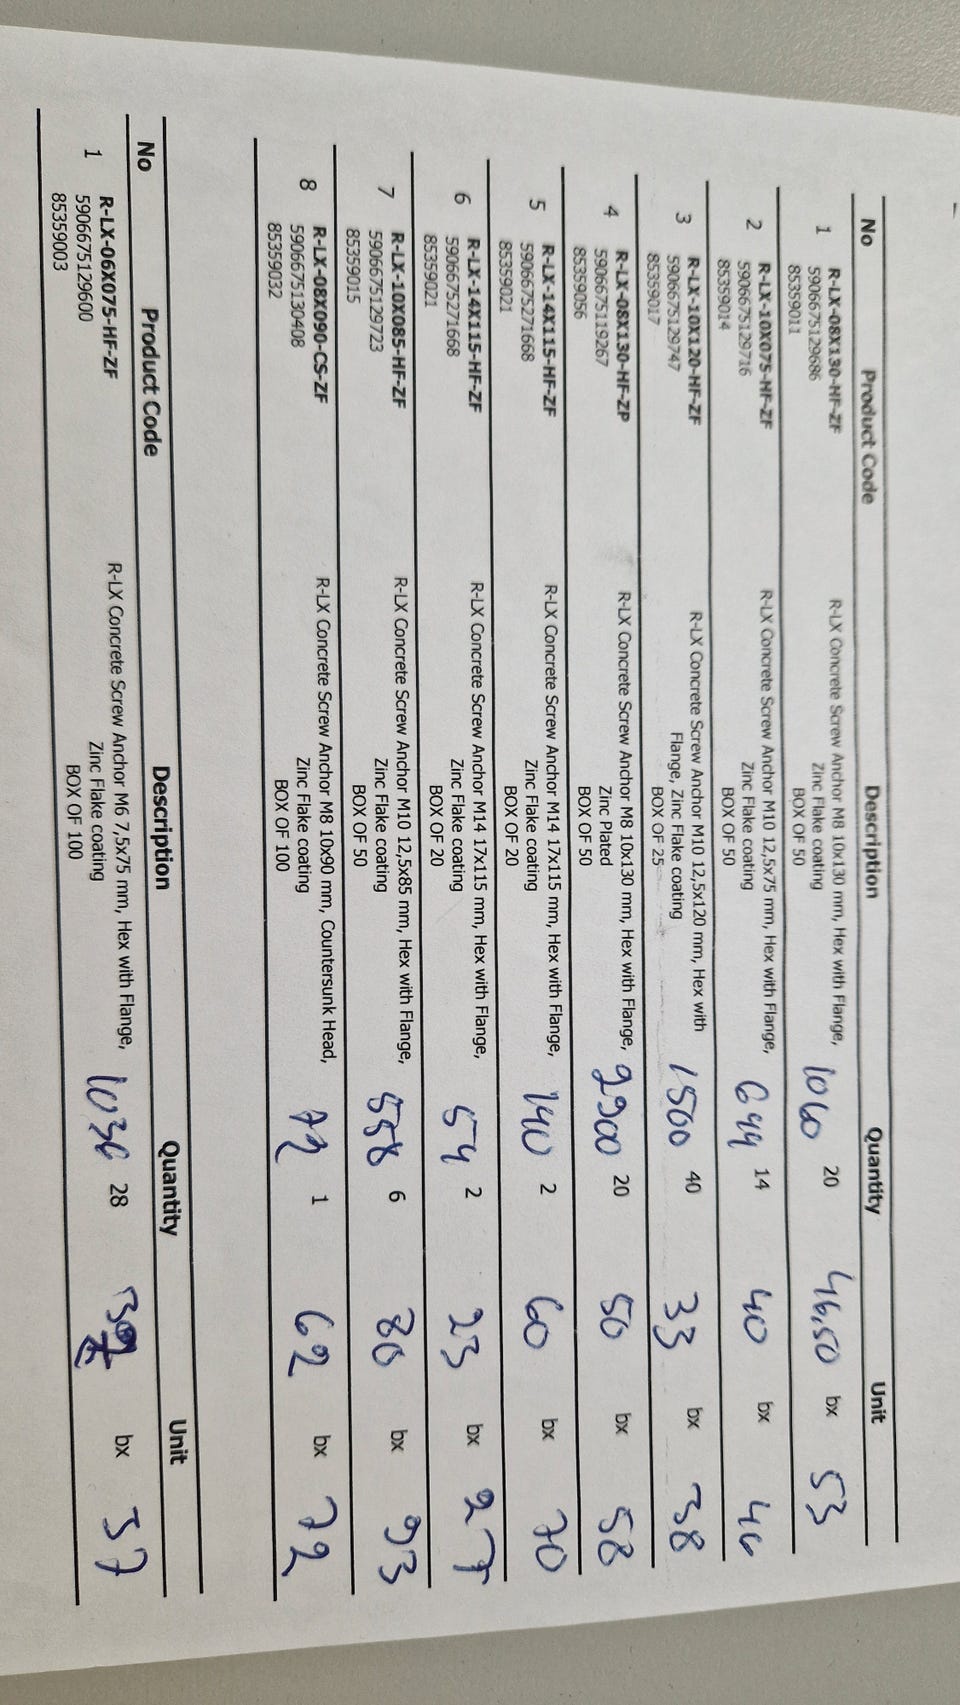 No Product Code Description Quantity Unit
1 R-LX-08X130-HF-ZF R-LX Concrete Screw Anchor M8 10x130 mm, Hex with Flange, 1060 20 46,50 bx 53
5906675129686 Zinc Flake coating
85359011 BOX OF 50
2 R-LX-10X075-HF-ZF R-LX Concrete Screw Anchor M10 12,5x75 mm, Hex with Flange, 644 14 40 bx 46
5906675129716 Zinc Flake coating
85359014 BOX OF 50
3 R-LX-10X120-HF-ZF R-LX Concrete Screw Anchor M10 12,5x120 mm, Hex with 1500 40 33 bx 38
5906675129747 Flange, Zinc Flake coating
85359017 BOX OF 25
4 R-LX-08X130-HF-ZP R-LX Concrete Screw Anchor M8 10x130 mm, Hex with Flange, 2900 20 50 bx 58
5906675119267 Zinc Plated
85359056 BOX OF 50
5 R-LX-14X115-HF-ZF R-LX Concrete Screw Anchor M14 17x115 mm, Hex with Flange, 140 2 60 bx 70
5906675271668 Zinc Flake coating
85359021 BOX OF 20
6 R-LX-14X115-HF-ZF R-LX Concrete Screw Anchor M14 17x115 mm, Hex with Flange, 54 2 23 bx 27
5906675271668 Zinc Flake coating
85359021 BOX OF 20
7 R-LX-10X085-HF-ZF R-LX Concrete Screw Anchor M10 12,5x85 mm, Hex with Flange, 558 6 80 bx 93
5906675129723 Zinc Flake coating
85359015 BOX OF 50
8 R-LX-08X090-CS-ZF R-LX Concrete Screw Anchor M8 10x90 mm, Countersunk Head, 72 1 62 bx 72
5906675130408 Zinc Flake coating
85359032 BOX OF 100
No Product Code Description Quantity Unit
1 R-LX-06X075-HF-ZF R-LX Concrete Screw Anchor M6 7,5x75 mm, Hex with Flange, 1036 28 bx 37
5906675129600 Zinc Flake coating
85359003 BOX OF 100